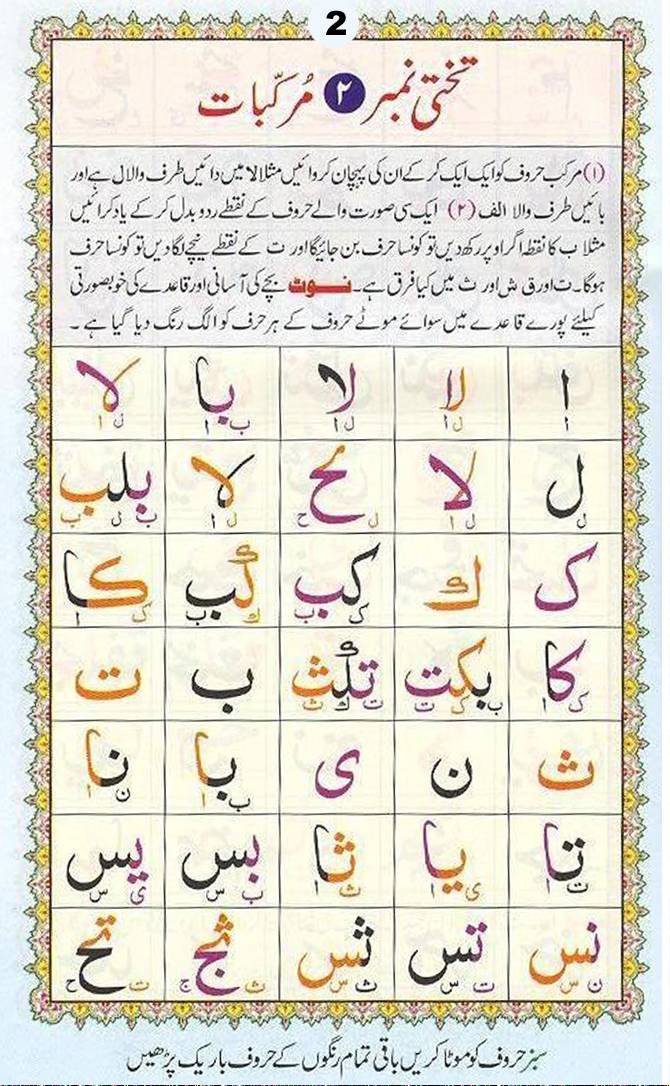 2
تختی نمبر ۲ مُرکّبات
(۱) مرکب حروف کو ایک ایک کر کے ان کی پہچان کروائیں مثلا لا میں دائیں طرف والا ل ہے اور
بائیں طرف والا الف (۲) ایک سی صورت والے حروف کے نقطے ردو بدل کر کے یاد کرائیں
مثلا ب کا نقطہ اگر اوپر رکھ دیں تو کونسا حرف بن جائیگا اور ت کے نقطے نیچے لگا دیں تو کونسا حرف
ہوگا۔ ت اور ق ش اور ث میں کیا فرق ہے۔ نــوٹ بچے کی آسانی اور قاعدے کی خوبصورتی
کیلئے پورے قاعدے میں سوائے موٹے حروف کے ہر حرف کو الگ رنگ دیا گیا ہے ۔
ا لا لا با لا
ا ل ا ل ا ب ا ل ا
ل لا لح لا بلب
ل ل ا ل ح ل ا ب ل ب
ک ك کب كب کا
ک ب ك ب ک ا
کا بکت تكث ب ت
ک ا ب ک ت ت ك ث
ث ن ی با نا
ب ا ن ا
تا یا ثا بس یس
ت ا ی ا ث ا ب س ی س
نس تس ثس ثج تح
ن س ت س ث س ث ج ت ح
سبز حروف کو موٹا کریں باقی تمام رنگوں کے حروف باریک پڑھیں